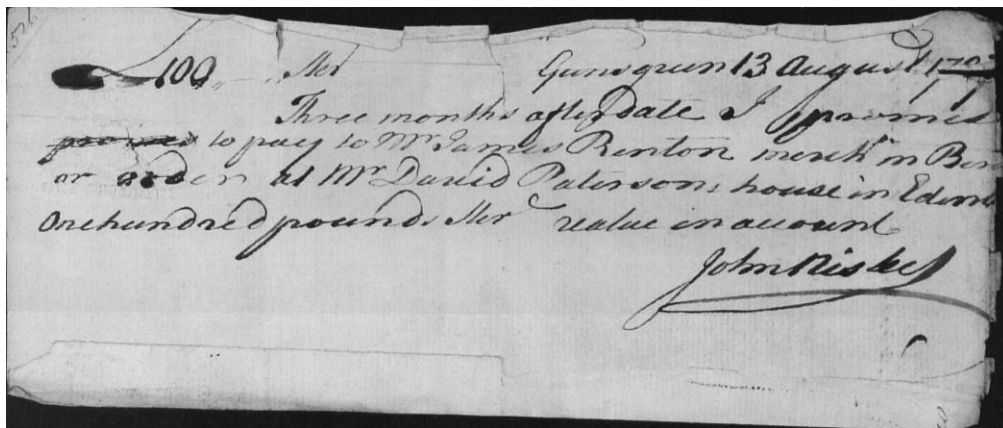 £100 Ster Gunsgreen 13 August 177
Three months after date I promes
promes to pay to Mr James Renton mercht in Ber
or order at Mr David Patersons house in Edinr
One hundred pounds Ster value in account
John Nisbet